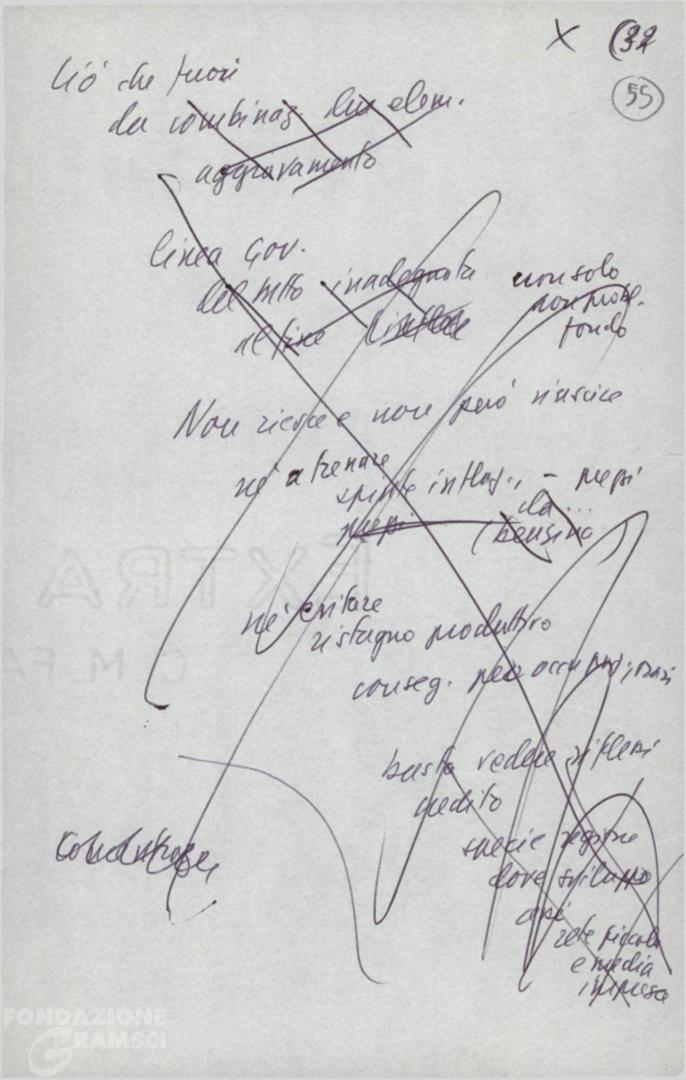 X (32
55
Ciò che fuori
da combinaz. due elem.
aggravamento
linea gov.
del tutto inadeguata
non solo
al fine
fondo
Non riesce e non può riuscire
né a frenare
spinte inflaz., – prezzi
prezzi
da...
(benzina
né evitare
ristagno produttivo
conseg. per occupaz.
basta vedere riflessi
credito
specie regione
dove sviluppo
così
rete piccola
e media
impresa
EXTRA
FONDAZIONE
GRAMSCI